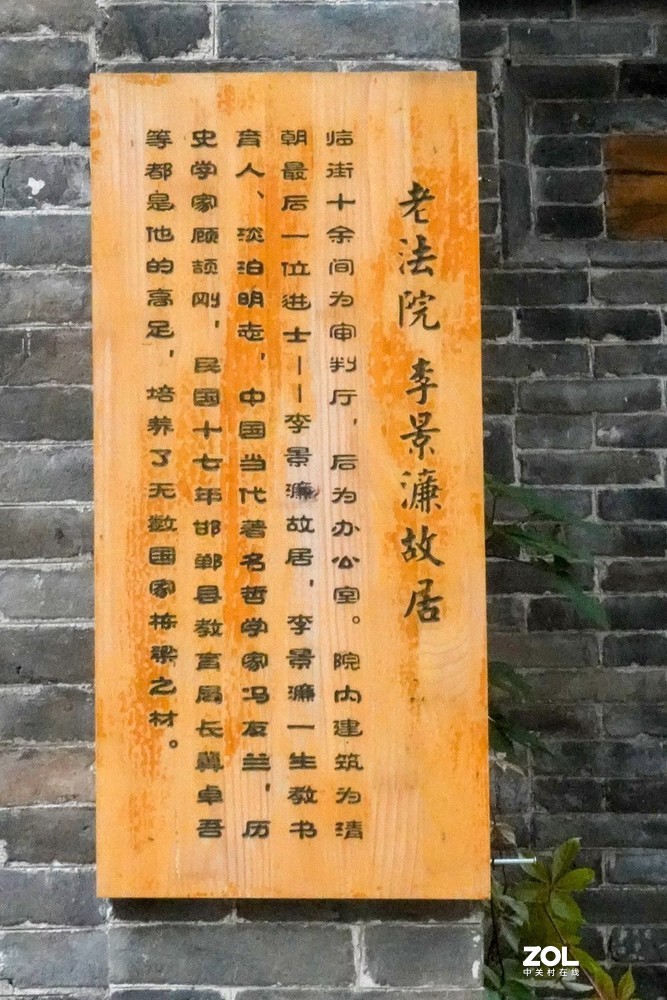 老法院 李景濂故居
临街十余间为审判厅，后为办公室。院内建筑为清
朝最后一位进士——李景濂故居，李景濂一生教书
育人、淡泊明志，中国当代著名哲学家冯友兰，历
史学家顾颉刚，民国十七年邯郸县教育局长冀卓吾
等都是他的高足，培养了无数国家栋梁之材。
ZOL
中关村在线